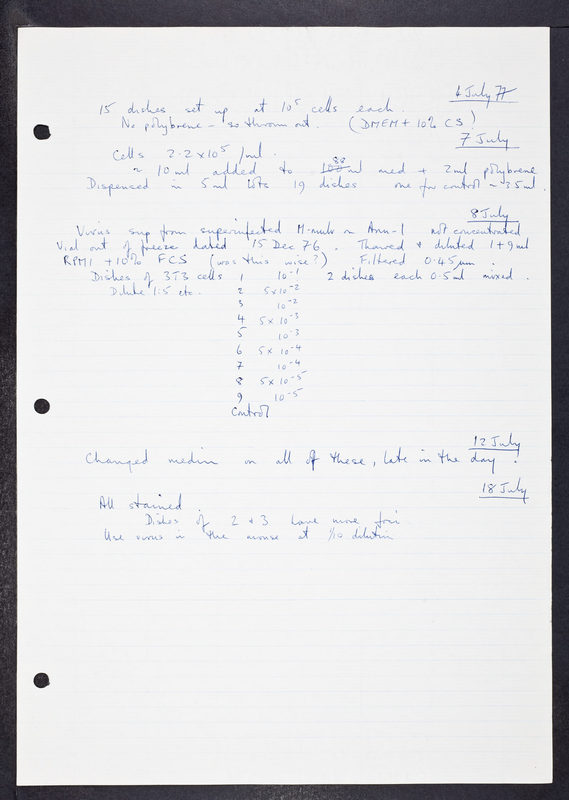 6 July 77
15 dishes set up at 10⁵ cells each.
No polybrene – so thrown out. (DMEM + 10% CS)
7 July
Cells 2.2 x 10⁵ /ml.
~ 10 ml added to 88 ml med + 2ml polybrene
Dispensed in 5 ml lots 19 dishes one for control ~ 3.5ml.
8 July
Virus sup from superinfected M-mulv on Ann-1 not concentrated
Vial out of freeze dated 15 Dec 76. Thawed + diluted 1 + 9 ml
RPMI + 10% FCS (was this wise?) Filtered 0.45µm.
Dishes of 3T3 cells 1 10⁻¹ 2 dishes each 0.5 ml mixed.
Dilute 1:5 etc. 2 5 x 10⁻²
3 10⁻²
4 5 x 10⁻³
5 10⁻³
6 5 x 10⁻⁴
7 10⁻⁴
8 5 x 10⁻⁵
9 10⁻⁵
Control
12 July
Changed medium on all of these, late in the day!
18 July
All stained.
Dishes of 2 + 3 have more foci
Use virus in the mouse at 1/10 dilution